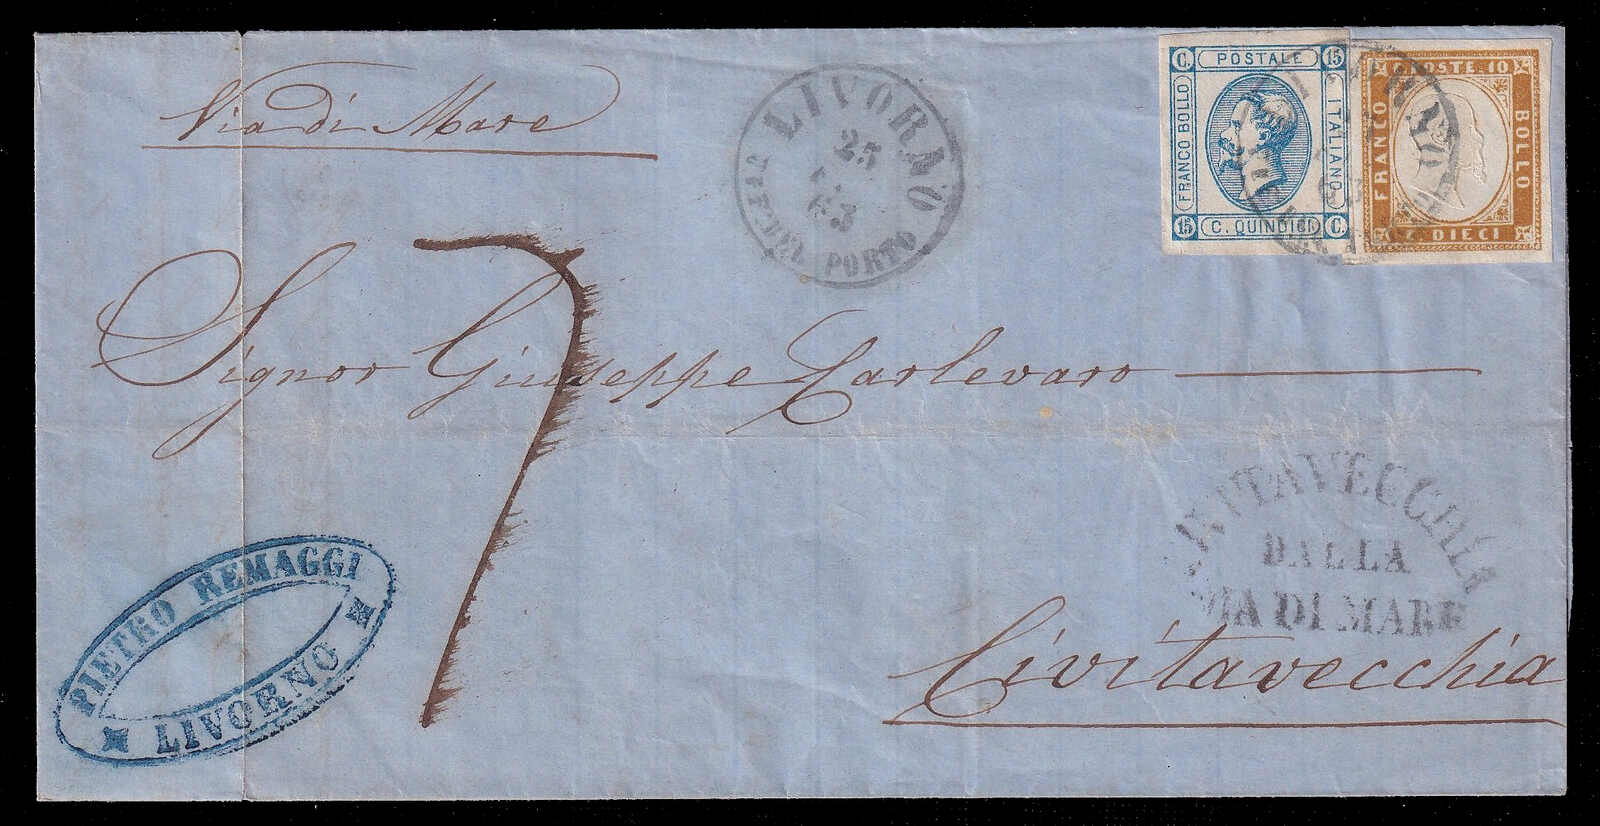 Via di Mare
LIVORNO
25
63
UFF. DEL PORTO
C. POSTALE 15
FRANCO BOLLO
ITALIANO
15 C. QUINDICI C.
C. POSTE. 10
FRANCO
BOLLO
DIECI
7
Signor Giuseppe Carlevaro
CIVITAVECCHIA
DALLA
VIA DI MARE
Civitavecchia
PIETRO REMAGGI
LIVORNO